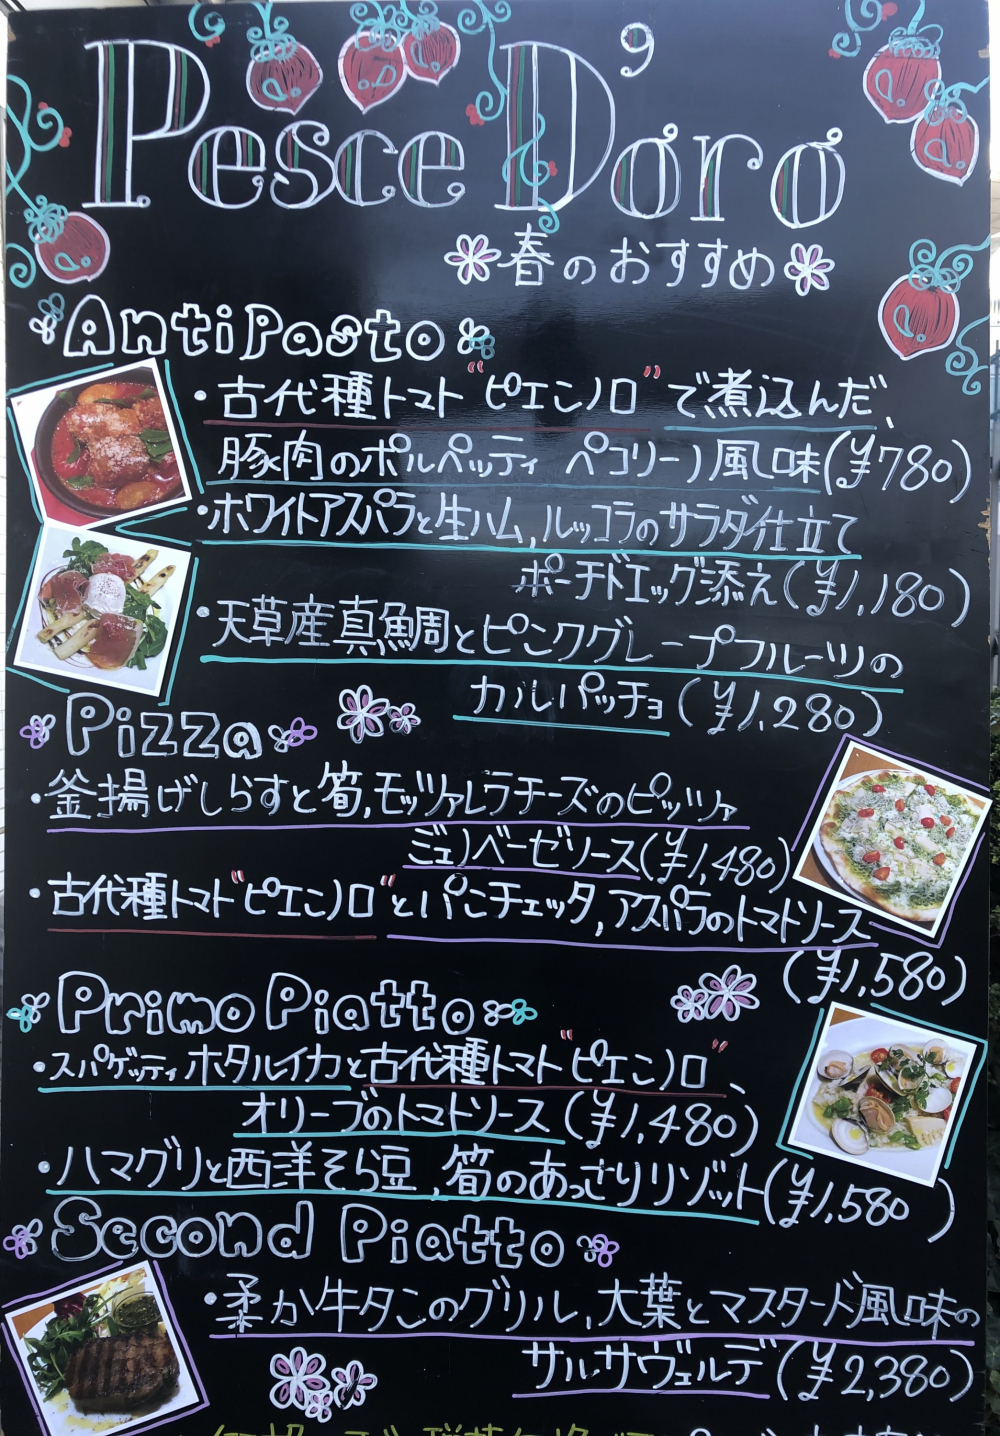 Pesce D'oro
春のおすすめ
AntiPasto
・古代種トマト"ピエンノロ"で煮込んだ、
豚肉のポルペッティ ペコリーノ風味(¥780)
・ホワイトアスパラと生ハム,ルッコラのサラダ仕立て
ポーチドエッグ添え(¥1,180)
・天草産真鯛とピンクグレープフルーツの
カルパッチョ(¥1,280)
Pizza
・釜揚げしらすと筍,モッツァレラチーズのピッツァ
ジェノベーゼソース(¥1,480)
・古代種トマト"ピエンノロ"とパンチェッタ,アスパラのトマトソース
(¥1,580)
Primo Piatto
・スパゲッティ ホタルイカと古代種トマト"ピエンノロ"、
オリーブのトマトソース(¥1,480)
・ハマグリと西洋そら豆,筍のあっさりリゾット(¥1,580)
Second Piatto
・柔か牛タンのグリル,大葉とマスタード風味の
サルサヴェルデ(¥2,380)